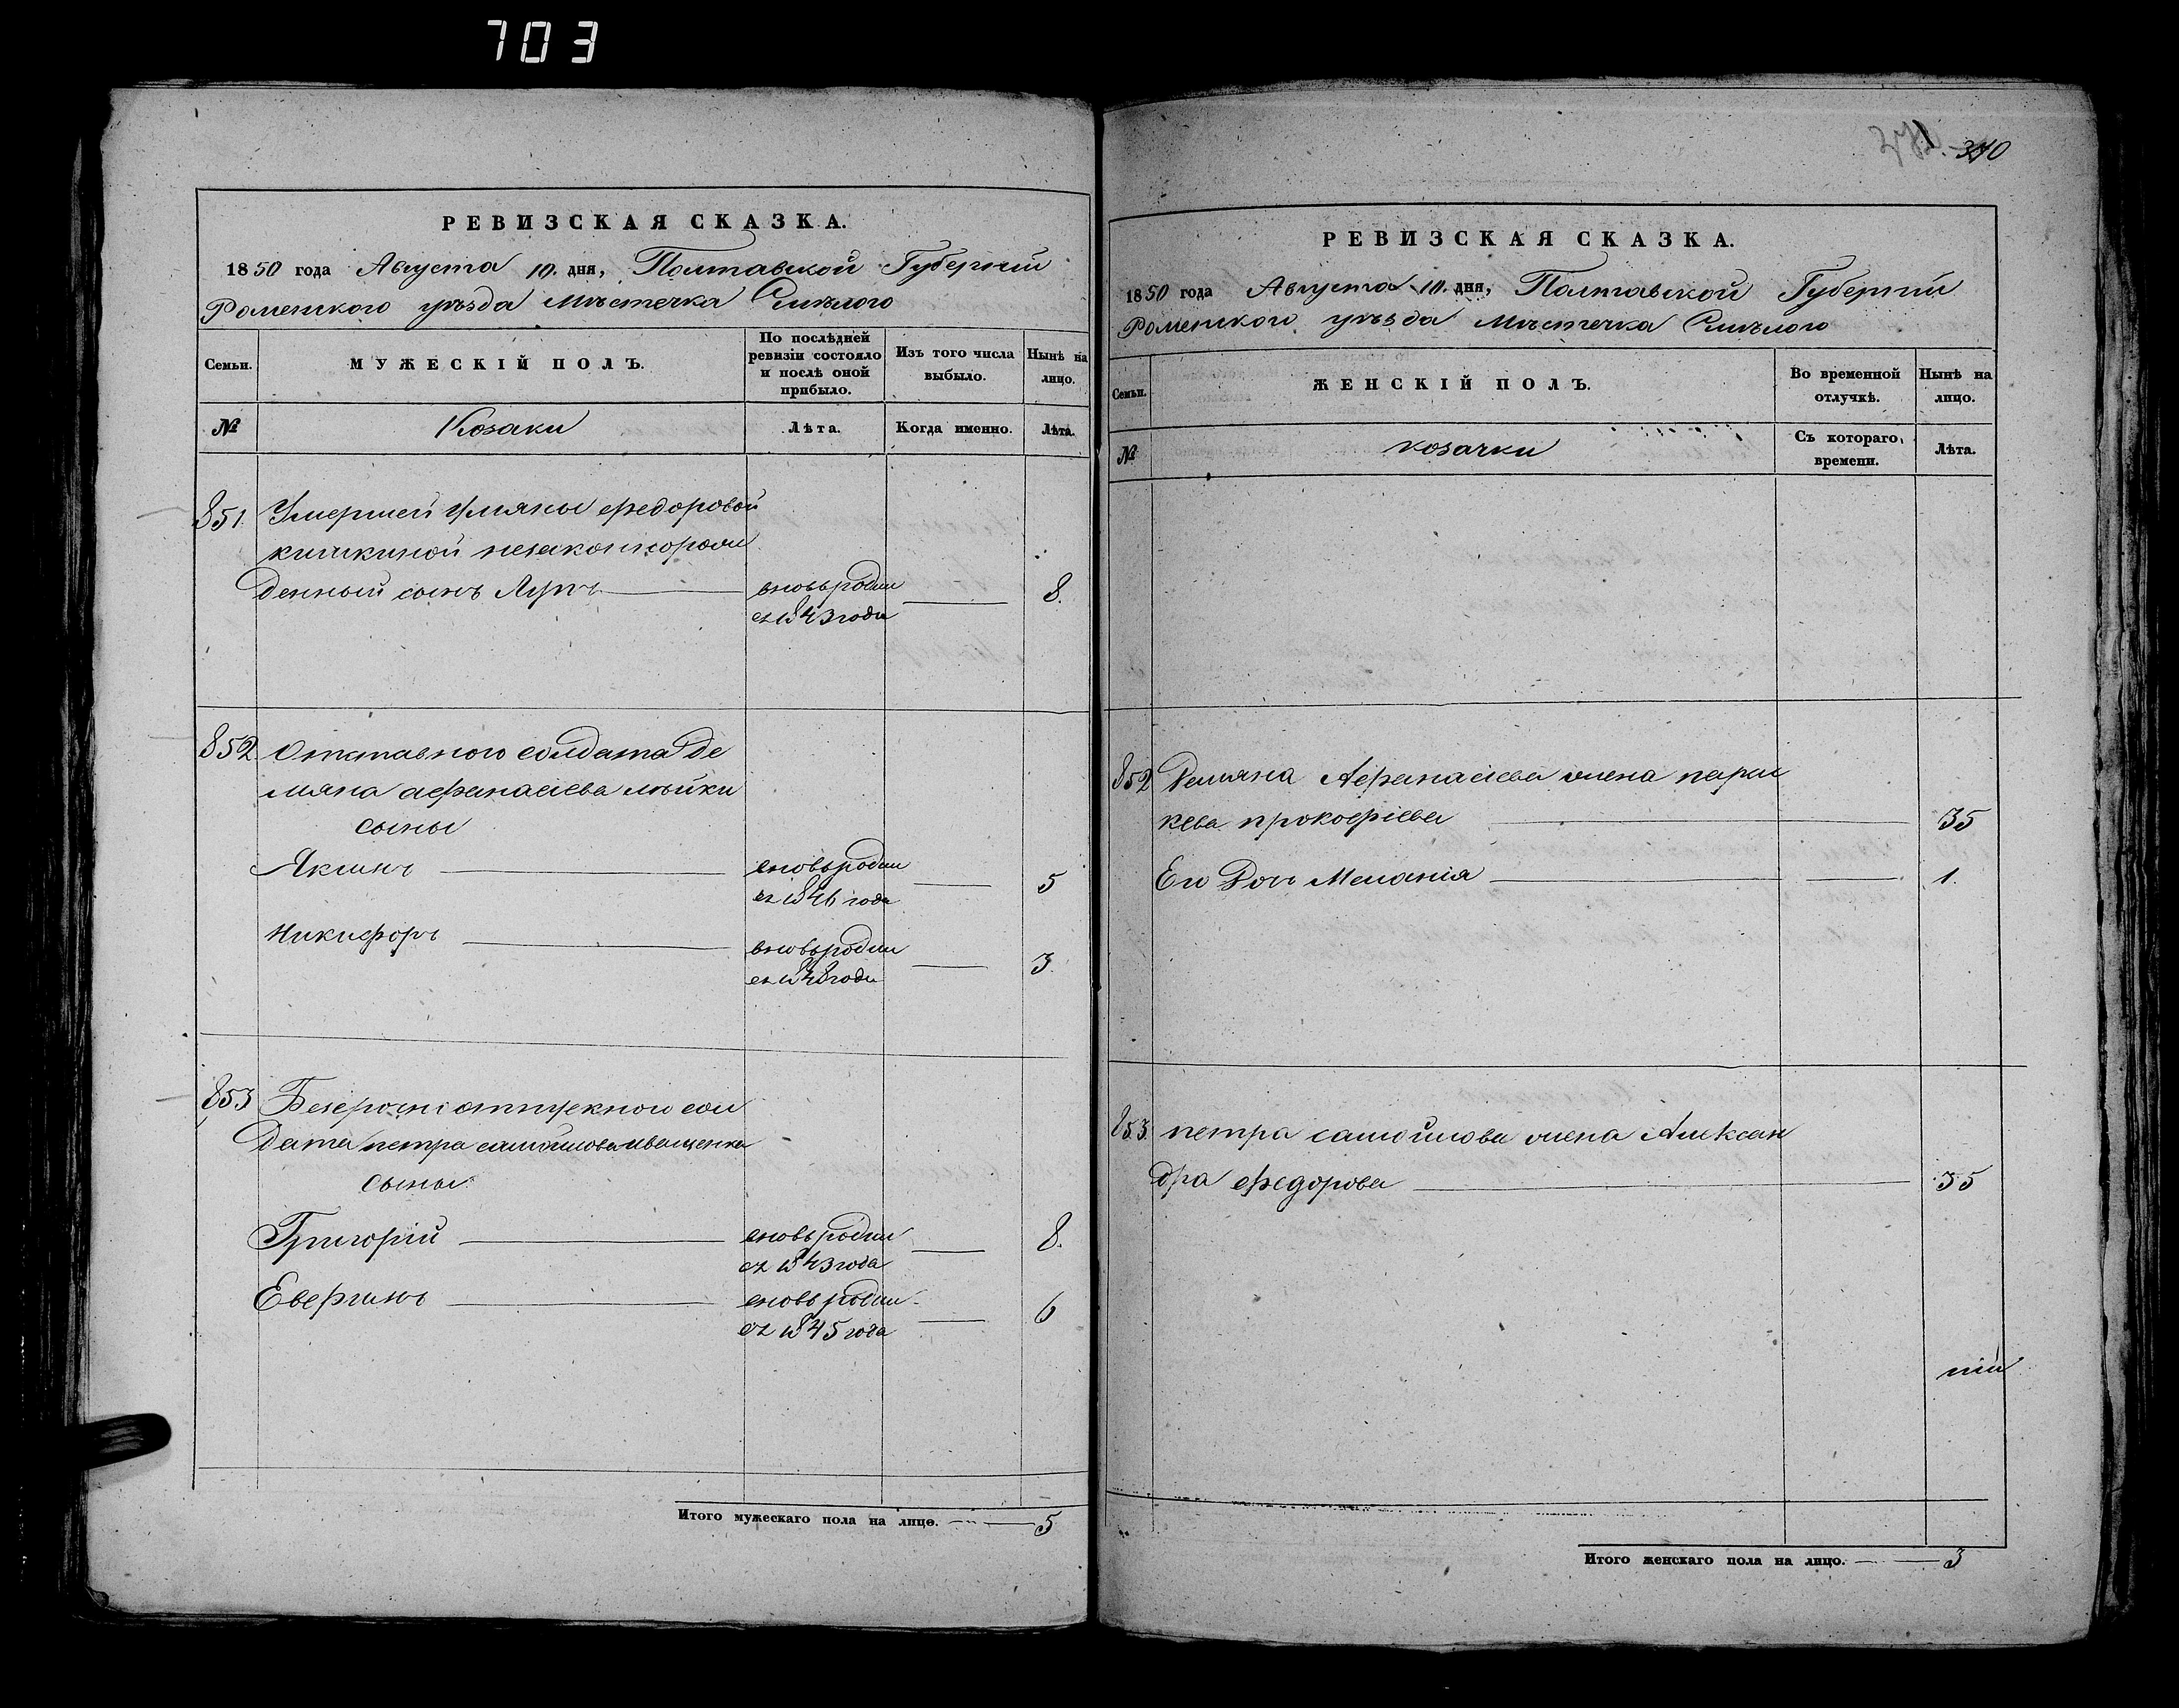 703
РЕВИЗСКАЯ СКАЗКА.
1850 года Августа 10. дня, Полтавской Губерніи
Роменского уѣзда Мѣстечка Смѣлого
Семьи.
МУЖЕСКІЙ ПОЛЪ.
По послѣдней ревизіи состояло и послѣ оной прибыло.
Изъ того числа выбыло.
Нынѣ на лицо.
№
Козаки
Лѣта.
Когда именно.
Лѣта.
851. Умершей Ульяны федоровой
незаконнорож
денный сынъ Лупъ вновьрожд 8.
съ 1843 года
852. Отставного солдата Де
мяна афанасіева
сыны
Якимъ вновьрожд 5
съ 1846 года
Никифоръ вновьрожд 3.
съ 1848 года
853 Безсрочно отпускного сол
дата петра самойлова иващенка
сыны
Григорій вновьрожд 8.
съ 1843 года
вновьрожд 6
съ 1845 года
Итого мужескаго пола на лицо. 5
370
РЕВИЗСКАЯ СКАЗКА.
1850 года Августа 10. дня, Полтавской Губерніи
Роменского уѣзда Мѣстечка Смѣлого
Семьи.
ЖЕНСКІЙ ПОЛЪ.
Во временной отлучкѣ.
Нынѣ на лицо.
№
козачки
Съ котораго времени.
Лѣта.
852 Демяна Афанасіева жена парас
кева прокофіева 35
Его Доч Меланія 1.
853. петра самойлова жена Алексан
дра федорова 35
Итого женскаго пола на лицо. 3